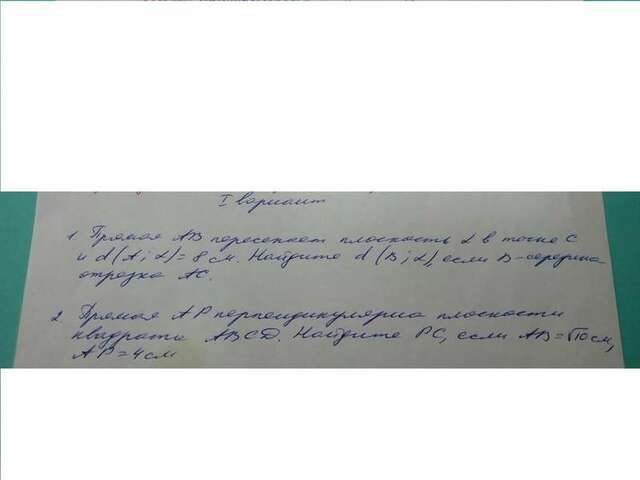 I вариант
1. Прямая AB пересекает плоскость α в точке C
и d(A; α) = 8 см. Найдите d(B; α), если B-середина
отрезка AC.
2. Прямая AP перпендикулярна плоскости
квадрата ABCD. Найдите PC, если AB = √10 см,
AP = 4 см